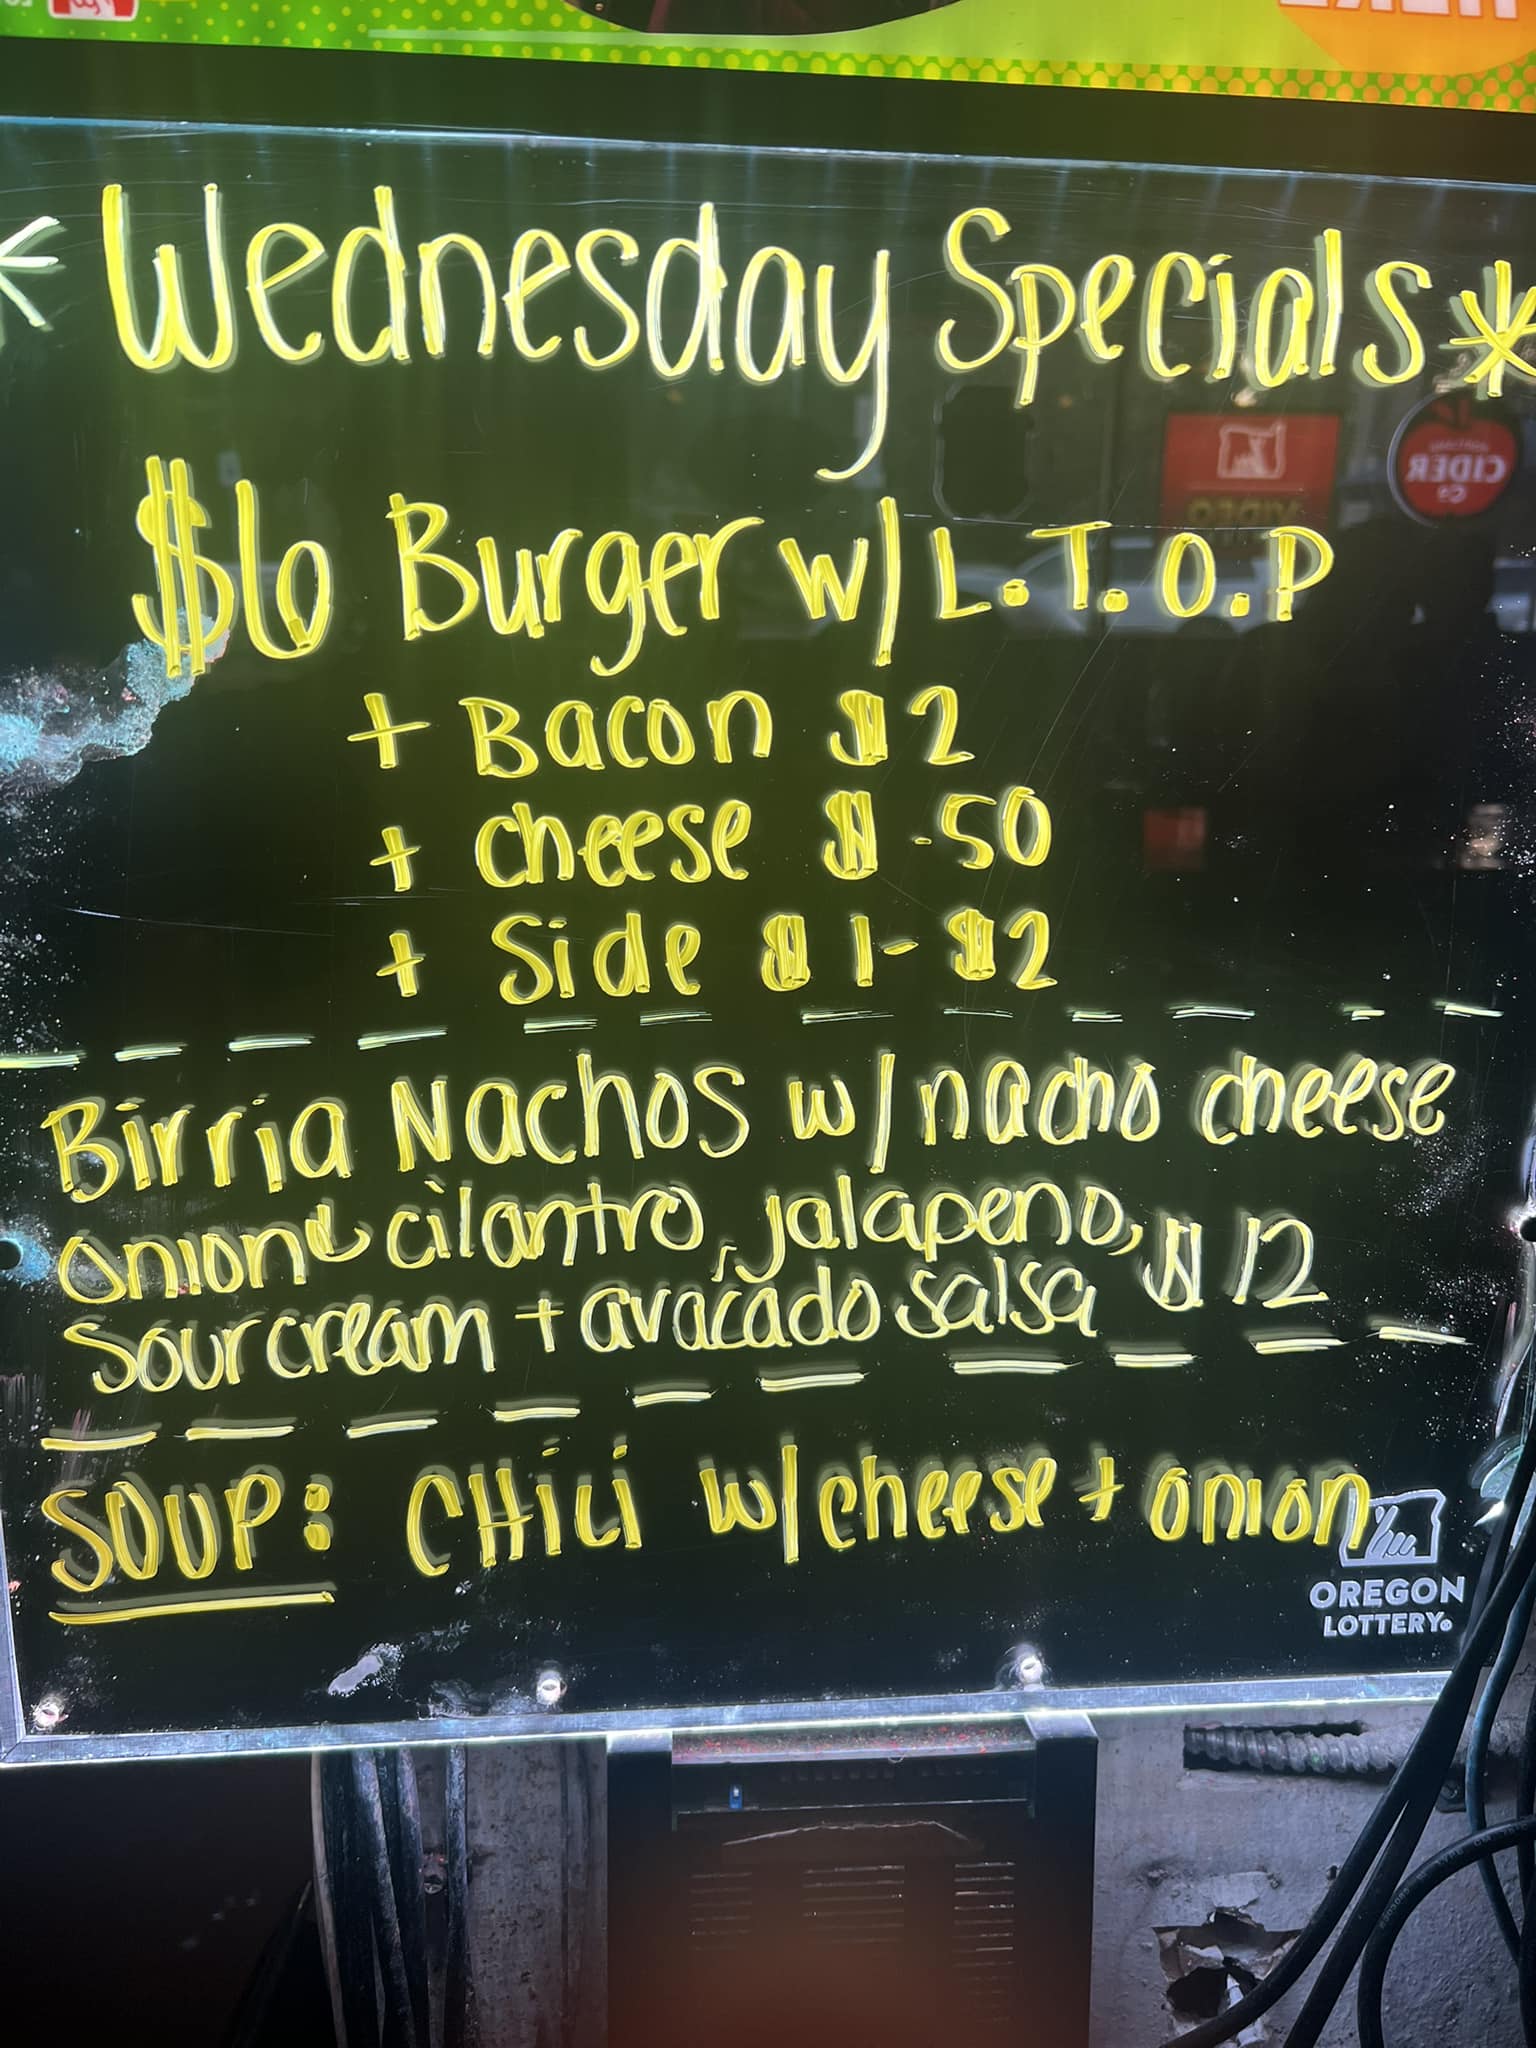 * Wednesday Specials *
$6 Burger w/ L.T.O.P
+ Bacon $2
+ cheese $.50
+ Side $1-$2
Birria Nachos w/ nacho cheese
onion & cilantro, jalapeno,
Sour cream + avacado salsa $12
SOUP: CHiLi w/ cheese + onion
OREGON
LOTTERY
CIDER
Co
VIDEO